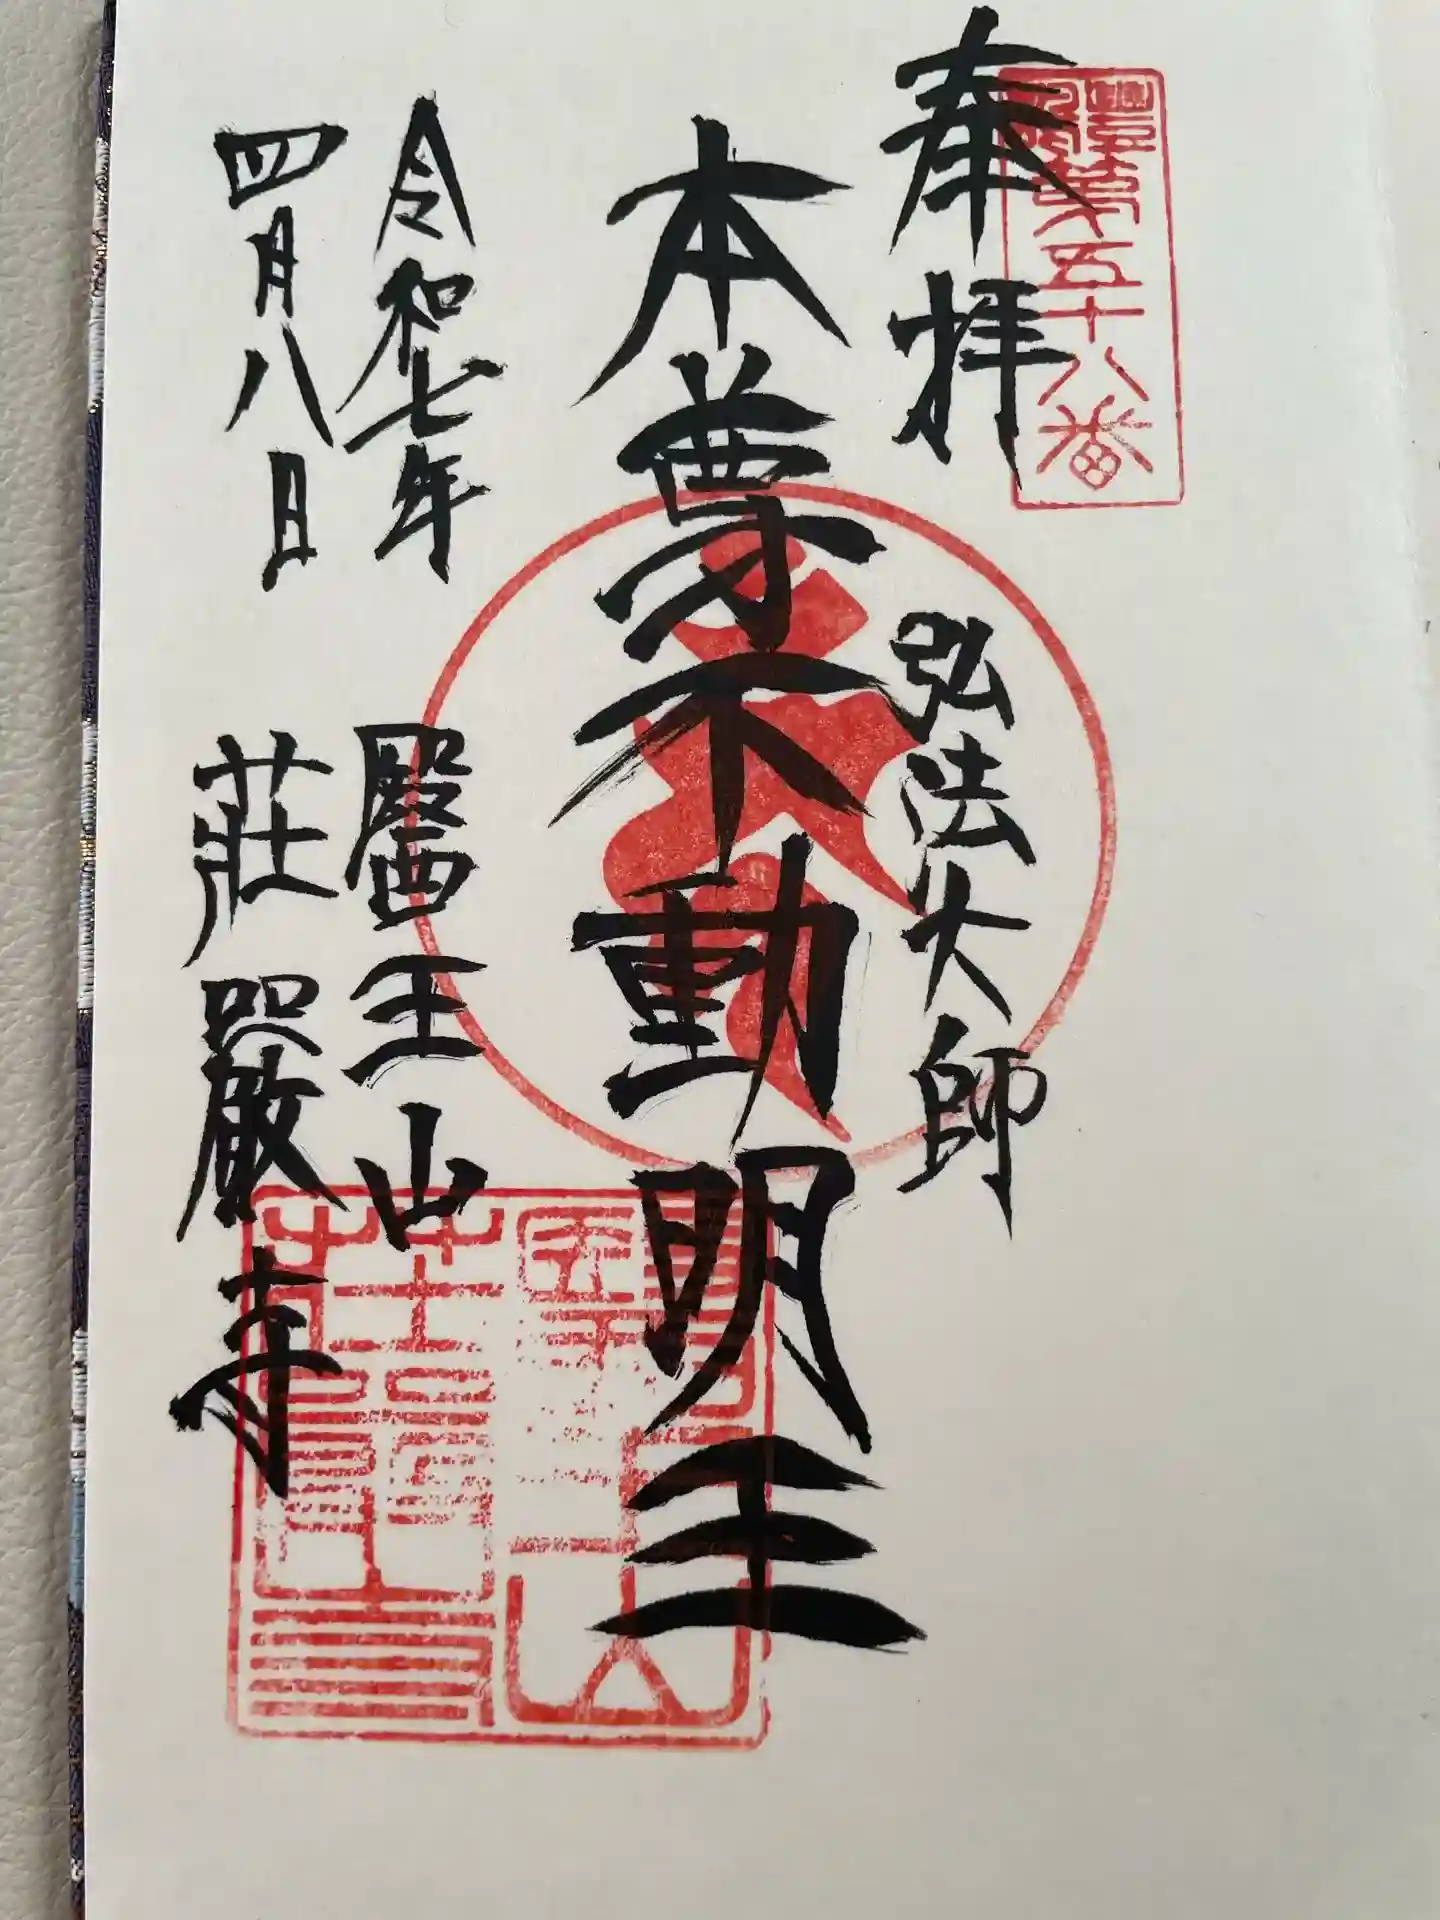 奉拝
弘法大師
本尊不動明王
令和七年
四月八日
醫王山
莊嚴寺
第五十八番